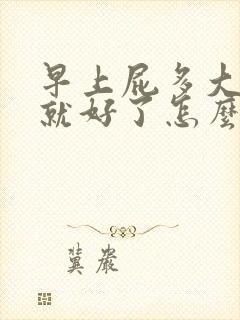 早上屁多大
就好了怎麼
冀嚴